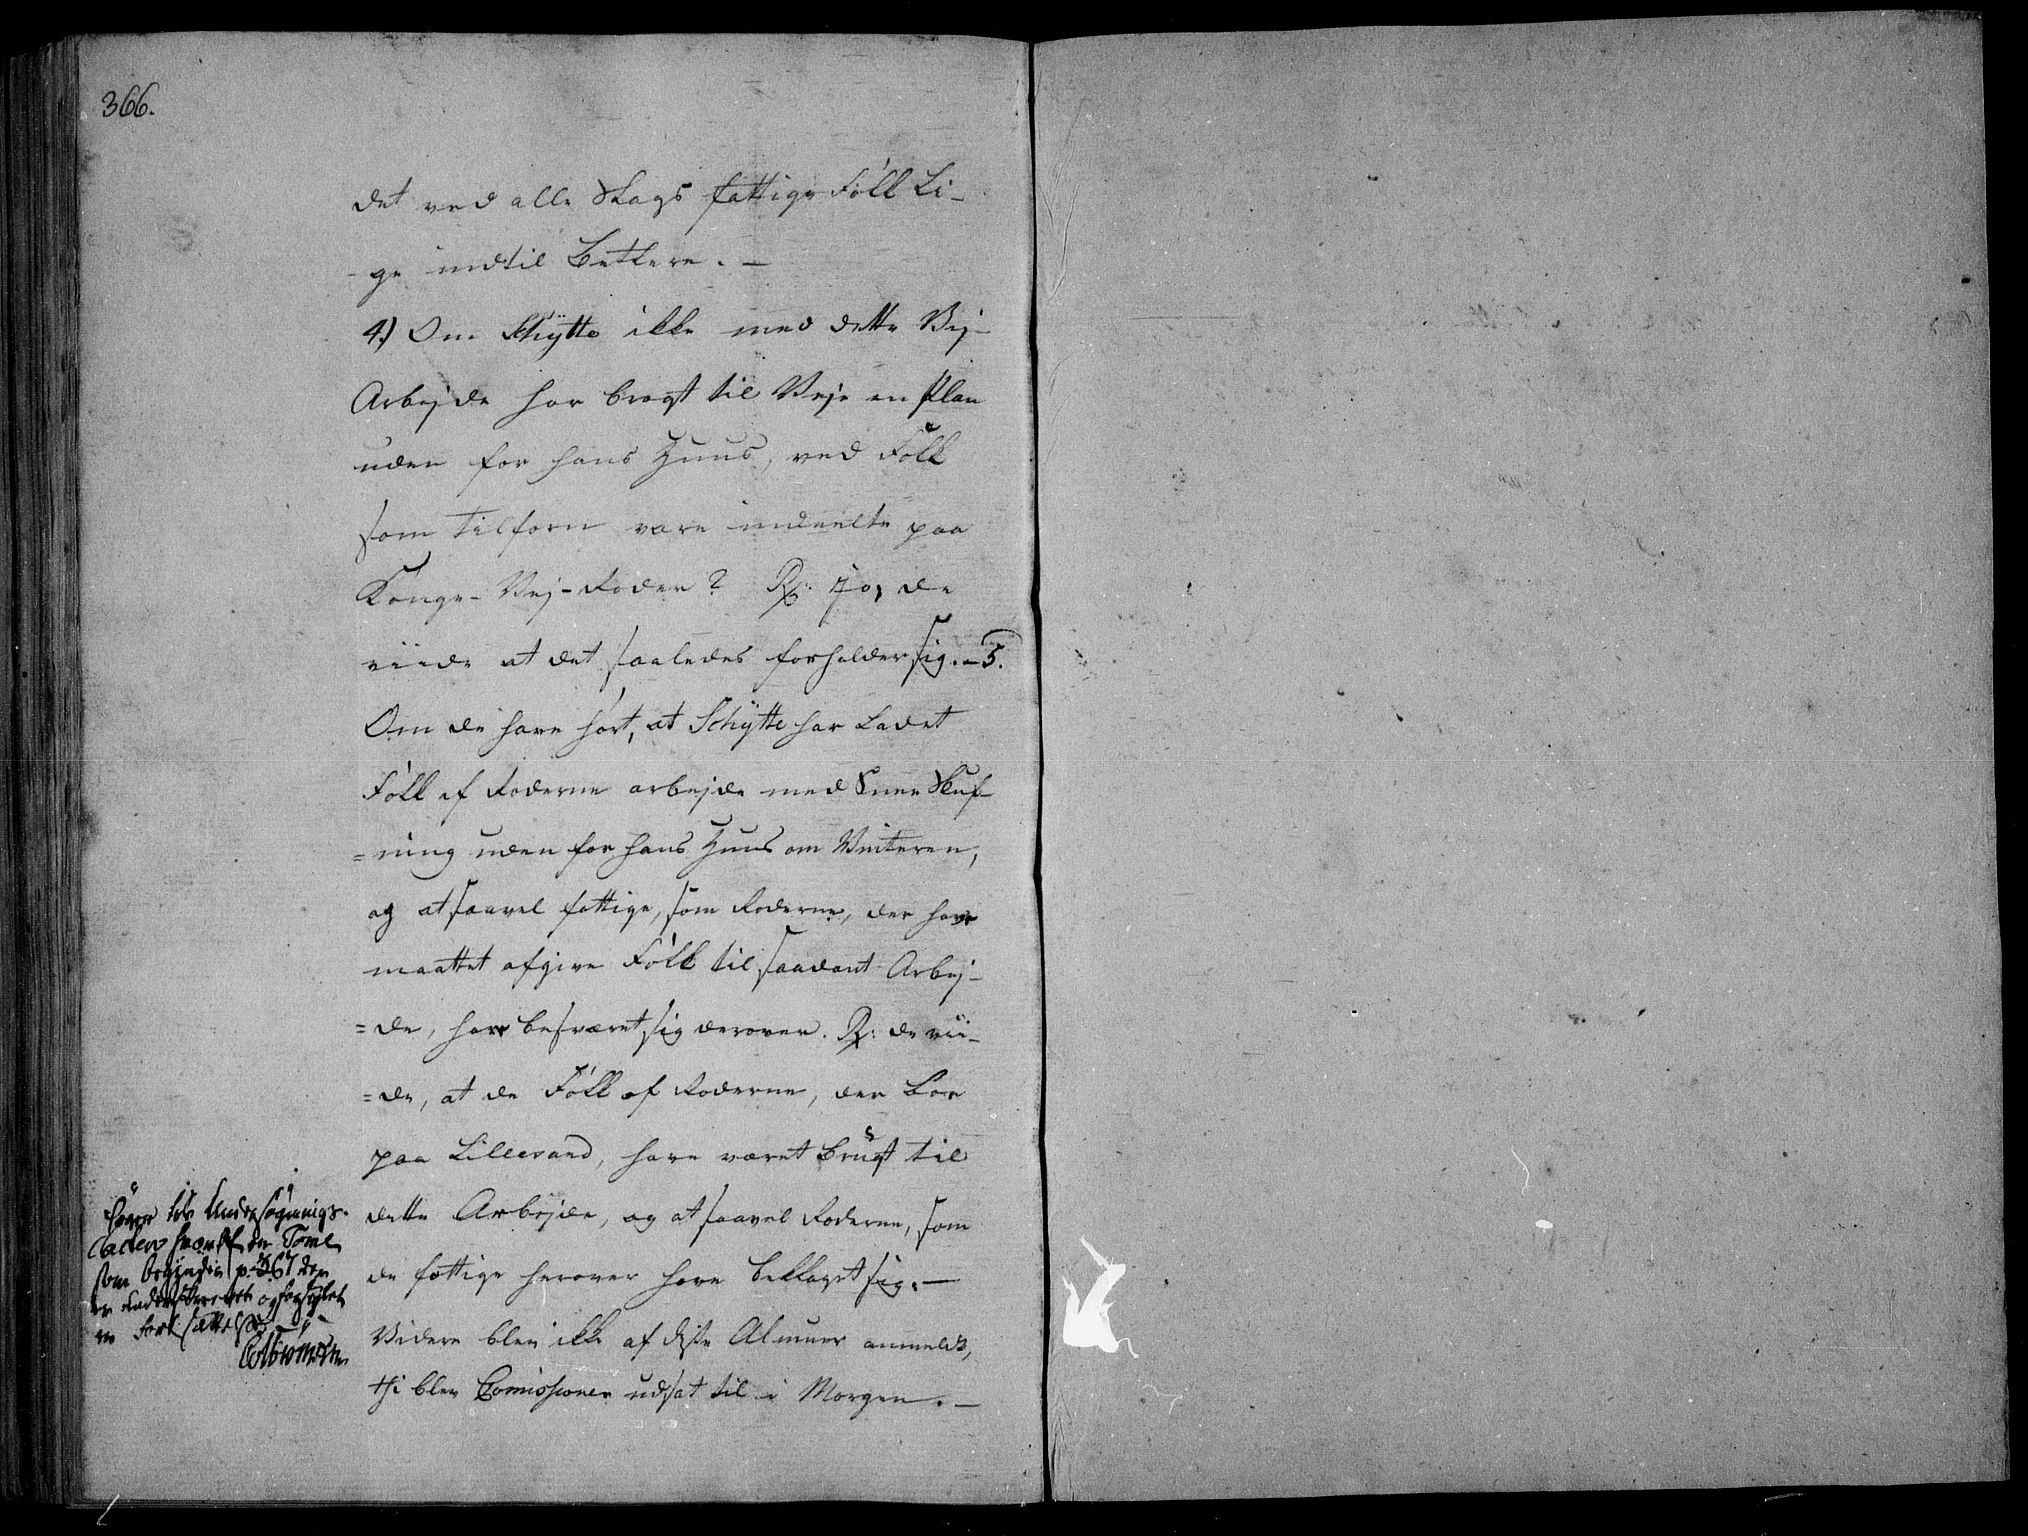 366.
det ved alle Slags fattige Folk Li-
ge indtil Betlere. -
4) Om Schytte ikke med dette Vej-
Arbejde har bragt til Veje en Plan
uden for hans Huus, ved Folk
som tilforn vare inddeelte paa
Konge-Vej-Roder? Rx: Jo, de
viide at det saaledes forholder sig. - 5.
Om de have hørt, at Schytte har Ladet
Folk af Roderne arbejde med Snee Skuf-
=ning uden for hans Huus om Vinteren,
og at saavel fattige, som Roderne, der have
maattet afgive Folk til saadant Arbej-
=de, have besværet sig derover. Rx: de vii-
=de, at de Folk af Roderne, der Boe
paa Lillesand, have været brugt til
dette Arbejde, og at saavel Roderne, som
de fattige herover have beklaget sig. -
Videre blev ikke af disse Almuer anmeldt,
thi blev Comissionen udsat til i Morgen. -
hører til Undersøgnings-
Acten Tome
som begynder p. 367 der
er og forseglet
en